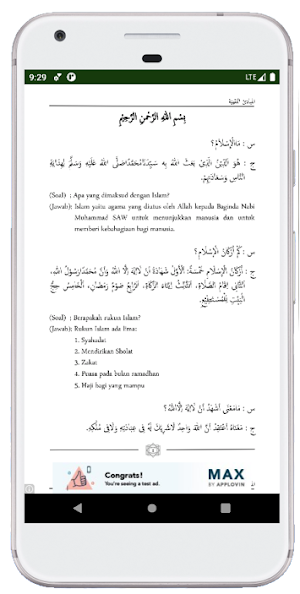 9:29
LTE
المبادئ الفقهية
بِسْمِ اللهِ الرَّحْمٰنِ الرَّحِيْمِ
س : مَاالْإِسْلَامُ؟
ج : هُوَ الدِّيْنُ الَّذِيْ بَعَثَ اللهُ بِهِ سَيِّدَنَامُحَمَّدًاصَلَّى اللهُ عَلَيْهِ وَسَلَّمَ لِهِدَايَةِ
النَّاسِ وَسَعَادَتِهِمْ.
(Soal) ; Apa yang dimaksud dengan Islam?
(Jawab); Islam yaitu agama yang diutus oleh Allah kepada Baginda Nabi
Muhammad SAW untuk menunjukkan manusia dan untuk
memberi kebahagiaan bagi manusia.
س : كَمْ أَرْكَانُ الْإِسْلَامِ؟
ج : أَرْكَانُ الْإِسْلَامِ خَمْسَةٌ: اَلْأَوَّلُ شَهَادَةُ أَنْ لَاإِلٰهَ إِلَّا اللهُ وَأَنَّ مُحَمَّدًارَسُوْلُ اللهِ،
اَلثَّانِى إِقَامُ الصَّلَاةِ، اَلثَّالِثُ إِيْتَاءُ الزَّكَاةِ، اَلرَّابِعُ صَوْمُ رَمَضَانَ، اَلْخَامِسُ حِجُّ
الْبَيْتِ لِلْمُسْتَطِيْعِ.
(Soal) ; Berapakah rukun Islam?
(Jawab); Rukun Islam ada lima:
1. Syahadat
2. Mendirikan Sholat
3. Zakat
4. Puasa pada bulan ramadhan
5. Haji bagi yang mampu
س : مَامَعْنَى أَشْهَدُ أَنْ لَاإِلٰهَ إِلَّااللهُ؟
ج : مَعْنَاهُ أَعْتَقِدُ أَنَّ اللهَ وَاحِدٌ لَاشَرِيْكَ لَهُ فِى عِبَادَتِهِ وَلَافِى مُلْكِهِ.
Congrats!
You're seeing a test ad.
MAX
BY APPLOVIN